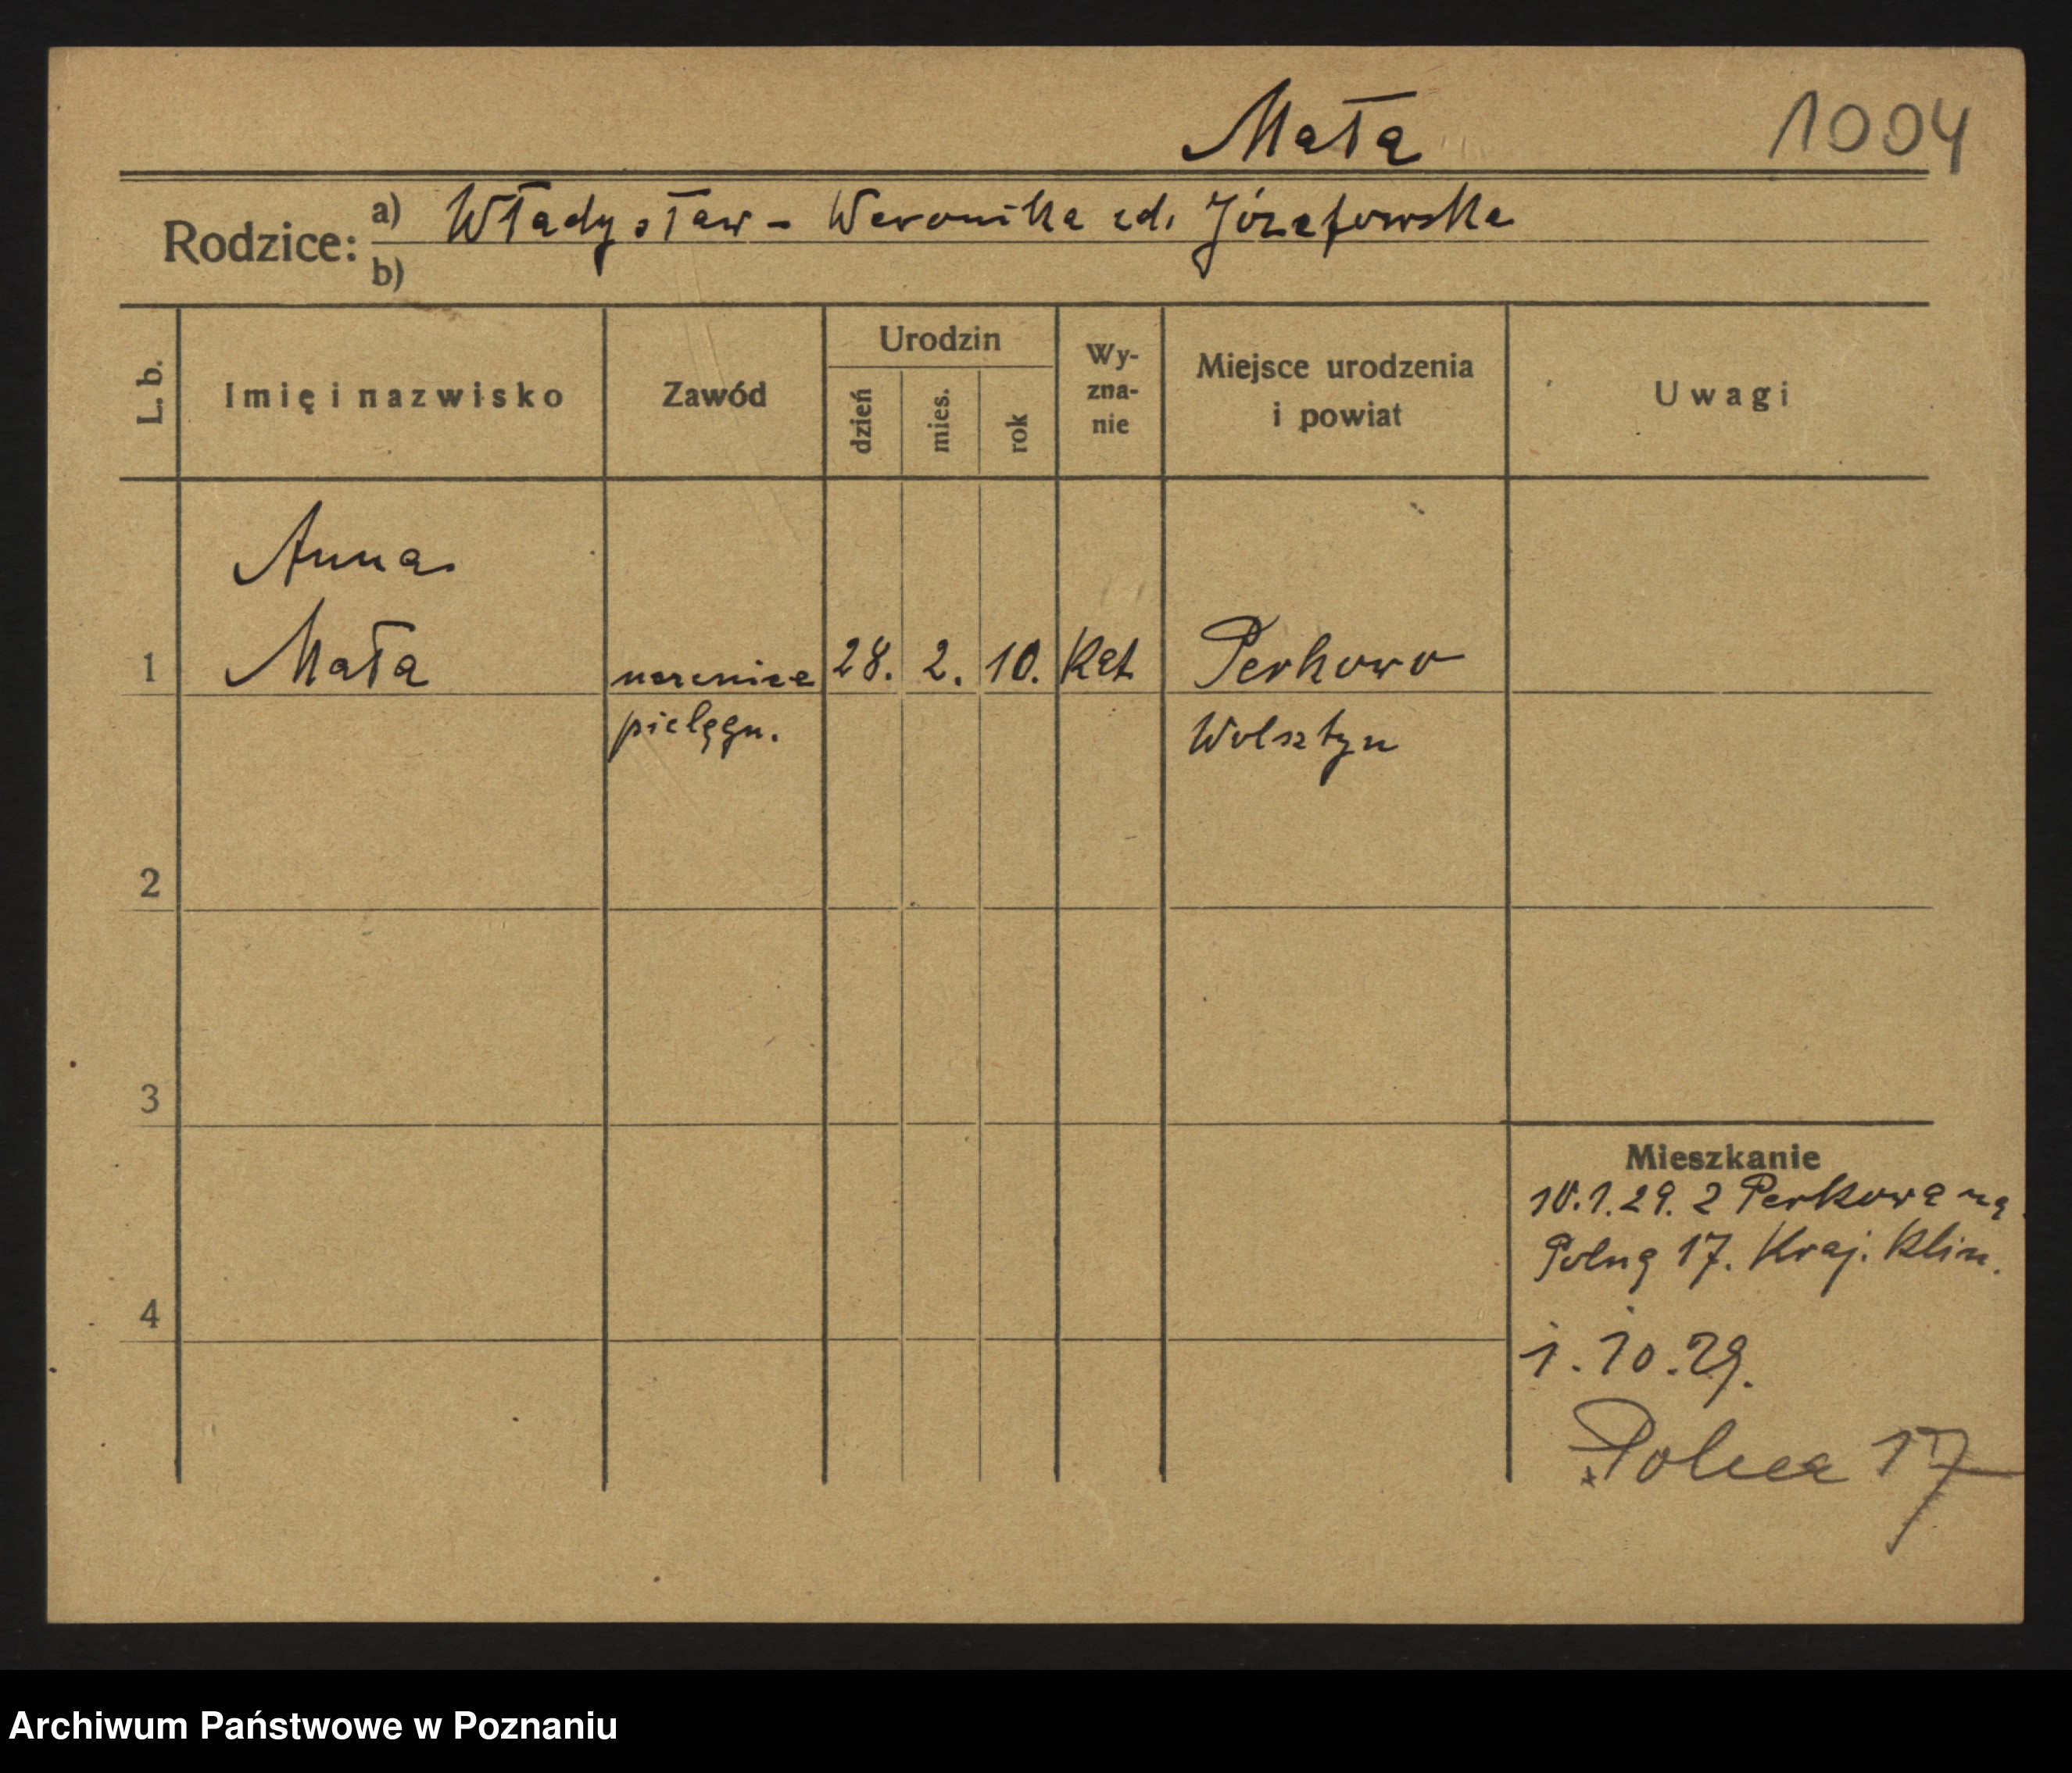 Mała 1004
Rodzice: a) Władysław - Weronika zd. Józefowska
b)
L. b. Imię i nazwisko Zawód Urodzin dzień mies. rok Wy-zna-nie Miejsce urodzenia i powiat Uwagi
Anna
1 Mała uczenica 28. 2. 10. Kat. Perkowo
pielęgn. Wolsztyn
2
3
Mieszkanie
10.1.29. z Perkowa na
Polną 17. Kraj. Klin.
4
1.10.29.
Polna 17
Archiwum Państwowe w Poznaniu